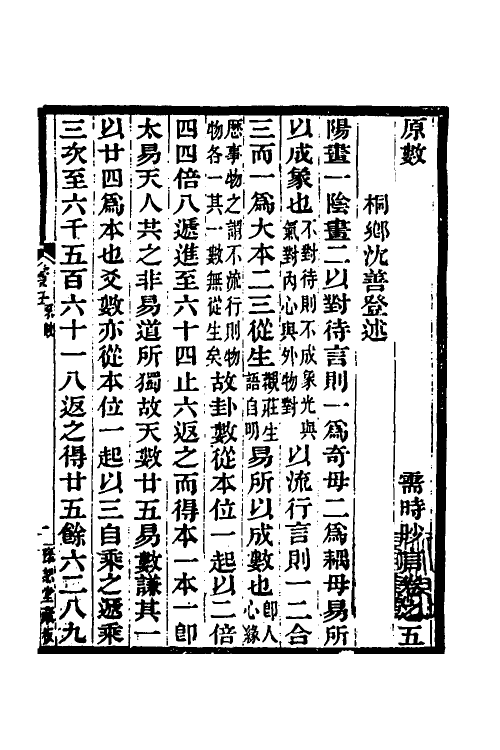 原數 需時眇言卷之五
桐鄉沈善登述
陽畫一陰畫二以對待言則一爲奇母二爲耦母易所
以成象也不對待則不成象光與氣對內心與外物對以流行言則一二合
三而一爲大本二三從生觀莊生語自明易所以成數也卽人心緣
歷事物之謂不流行則物物各一其一數無從生矣故卦數從本位一起以二倍
四四倍八遞進至六十四止六返之而得本一本一卽
太易天人共之非易道所獨故天數廿五易數謙其一
以廿四爲本也爻數亦從本位一起以三自乘之遞乘
三次至六千五百六十一八返之得廿五餘六二八九